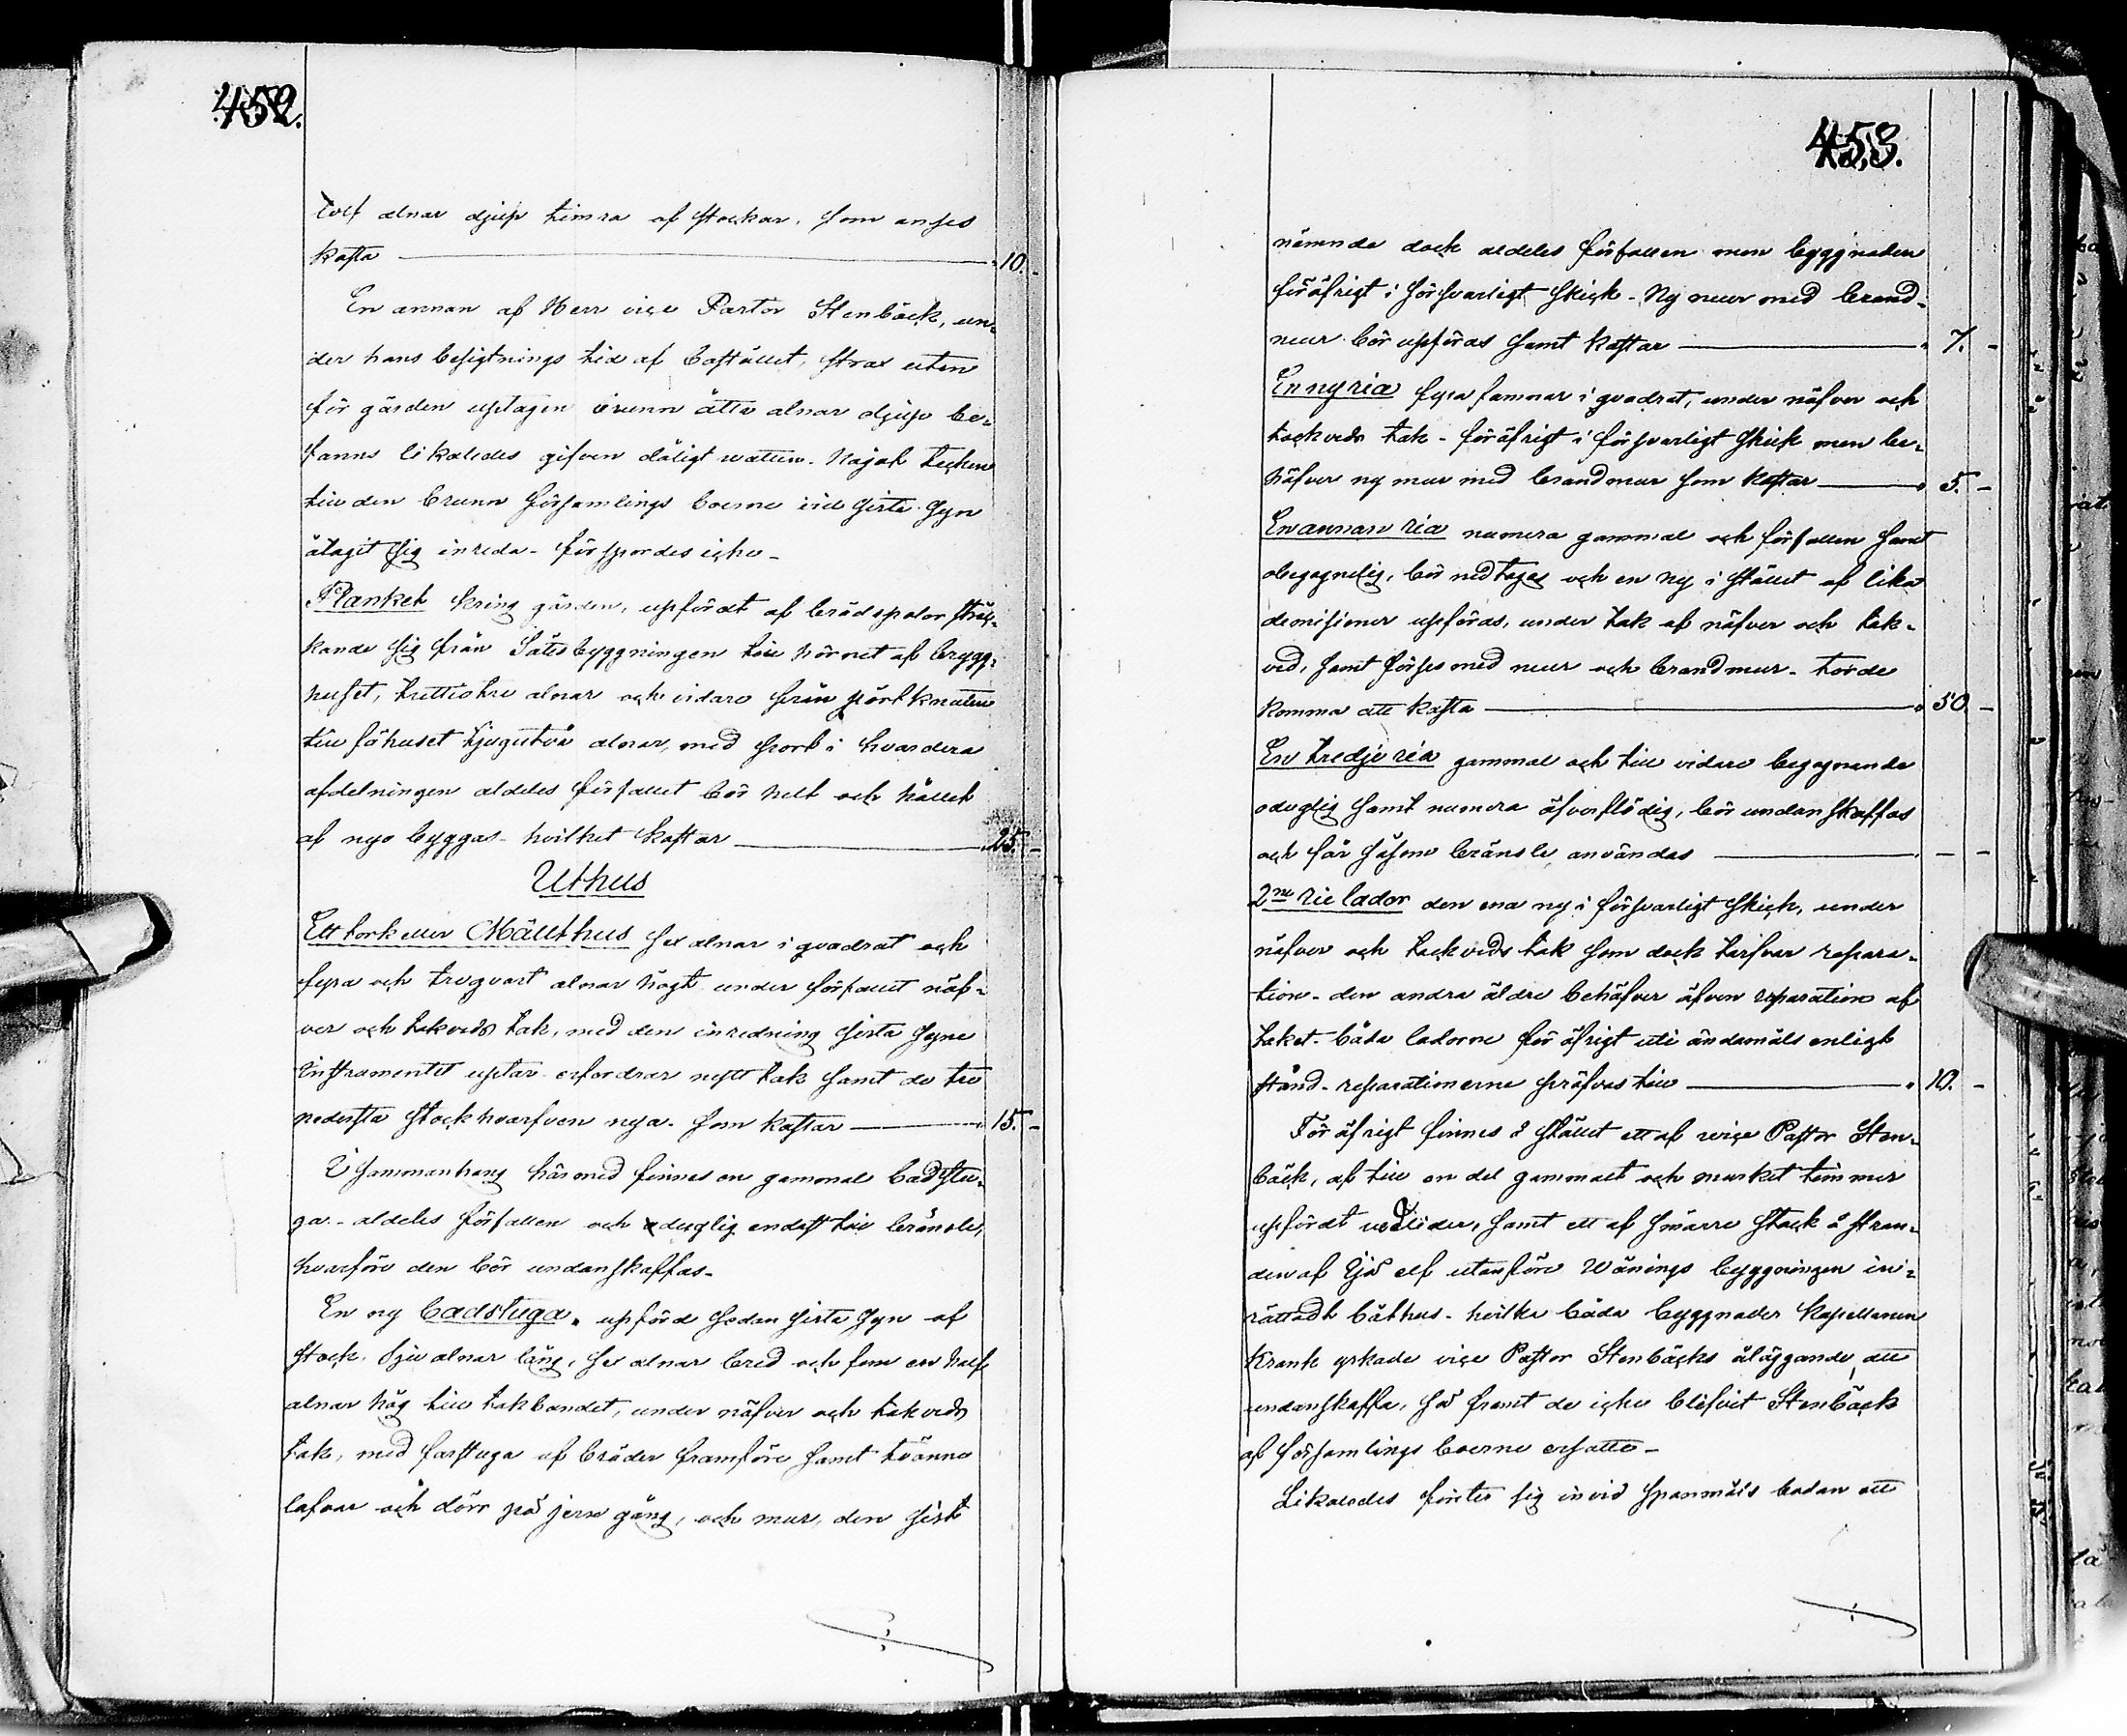 452.
tolf alnar djup timra af stockar, som anses
kosta 10. -
En annan af Herr vice Pastor Stenbäck, un-
der hans besigtnings tid af bostället, strax utan
för gården uptagen brunn åtta alnar djup be-
fanns likaledes gifven dåligt watten. Något teckn
till den brunn församlings boerne vid sista syn
åtagit sig inreda - förspordes icke -
Planket kring gården, upfördt af brädspolar sträc-
kande sig från Sätesbyggningen till hörnet af brygg-
huset, trettiotre alnar och vidare från pörtknuten
till fähuset tjugutvå alnar, med port i hvardera
afdelningen aldeles förfallet bör helt och hållet
af nyo byggas - hvilket kostar 25. -
Uthus
Ett tork eller Mälthus sex alnar i quadrat och
fyra och trequart alnar högt under förfallet näf-
ver och takveds tak, med den inredning sista syne
Instrumentet uptar erfordrar nytt tak samt de tre
nedersta stockhvarfven nya. som kostar 15. -
I sammanhang härmed finnes en gammal badstu-
ga - aldeles förfallen och duglig endast till bränsle,
hvarföre den bör undanskaffas -
En ny badstuga, uppförd sedan sista syn af
stock. Sju alnar lång, sex alnar bred och fem en half
alnar hög till takbandet, under näfver och takveds
tak, med farstuga af bräder framföre samt tvänne
lafvar och dörr på jern gång, och mur, den sist
453.
nämnde dock aldeles förfallen men byggnaden
föröfrigt i försvarligt skick - Ny mur med brand-
mur bör upföras samt kostar 7. -
En ny ria fyra famnar i quadrat, under näfver och
tackveds tak - föröfrigt i försvarligt skick men be-
höfver ny mur med brandmur som kostar 5. -
En annan ria numera gammal och förfallen samt
obegagnelig, bör nedtagas och en ny i stället af lika
demisioner upföras, under tak af näfver och tak-
ved, samt förses med mur och brandmur - torde
komma att kosta 50. -
En tredje ria gammal och till vidare begagnande
oduglig samt numera öfverflödig, bör undanskaffas
och får såsom bränsle användas - -
2ne rie lador den ena ny i försvarligt skick, under
näfver och tackveds tak som dock tarfvar repara-
tion - den andra äldre behöfver äfven reparation af
taket - båda ladorne för öfrigt uti ändamåls enligt
stånd - reparationerne pröfvas till 10. -
För öfrigt finnes å stället ett af vice Pastor Sten-
bäck, af till en del gammalt och murket timmer
upfördt vedlider, samt ett af smärre stock å stran-
den af Ijo elf utanföre Wånings byggningen in-
rättadt båthus - hvilka båda byggnader Kapellanen
Krank yrkade vice Pastor Stenbäcks åläggande, att
undanskaffa, så framt de icke blifvit Stenbäck
af församlings boerne ersatte -
Likaledes fintes sig invid spanmåls bodan ett